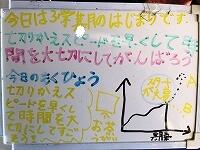 今日は3学期のはじまりです。
七刀りかえスピードを早くして時
間を大切にしてがんばろう
今日のもくひょう
七刀りかえス
ピードを早くし
て時間を大
切にしてすご
そう
お茶
A
B